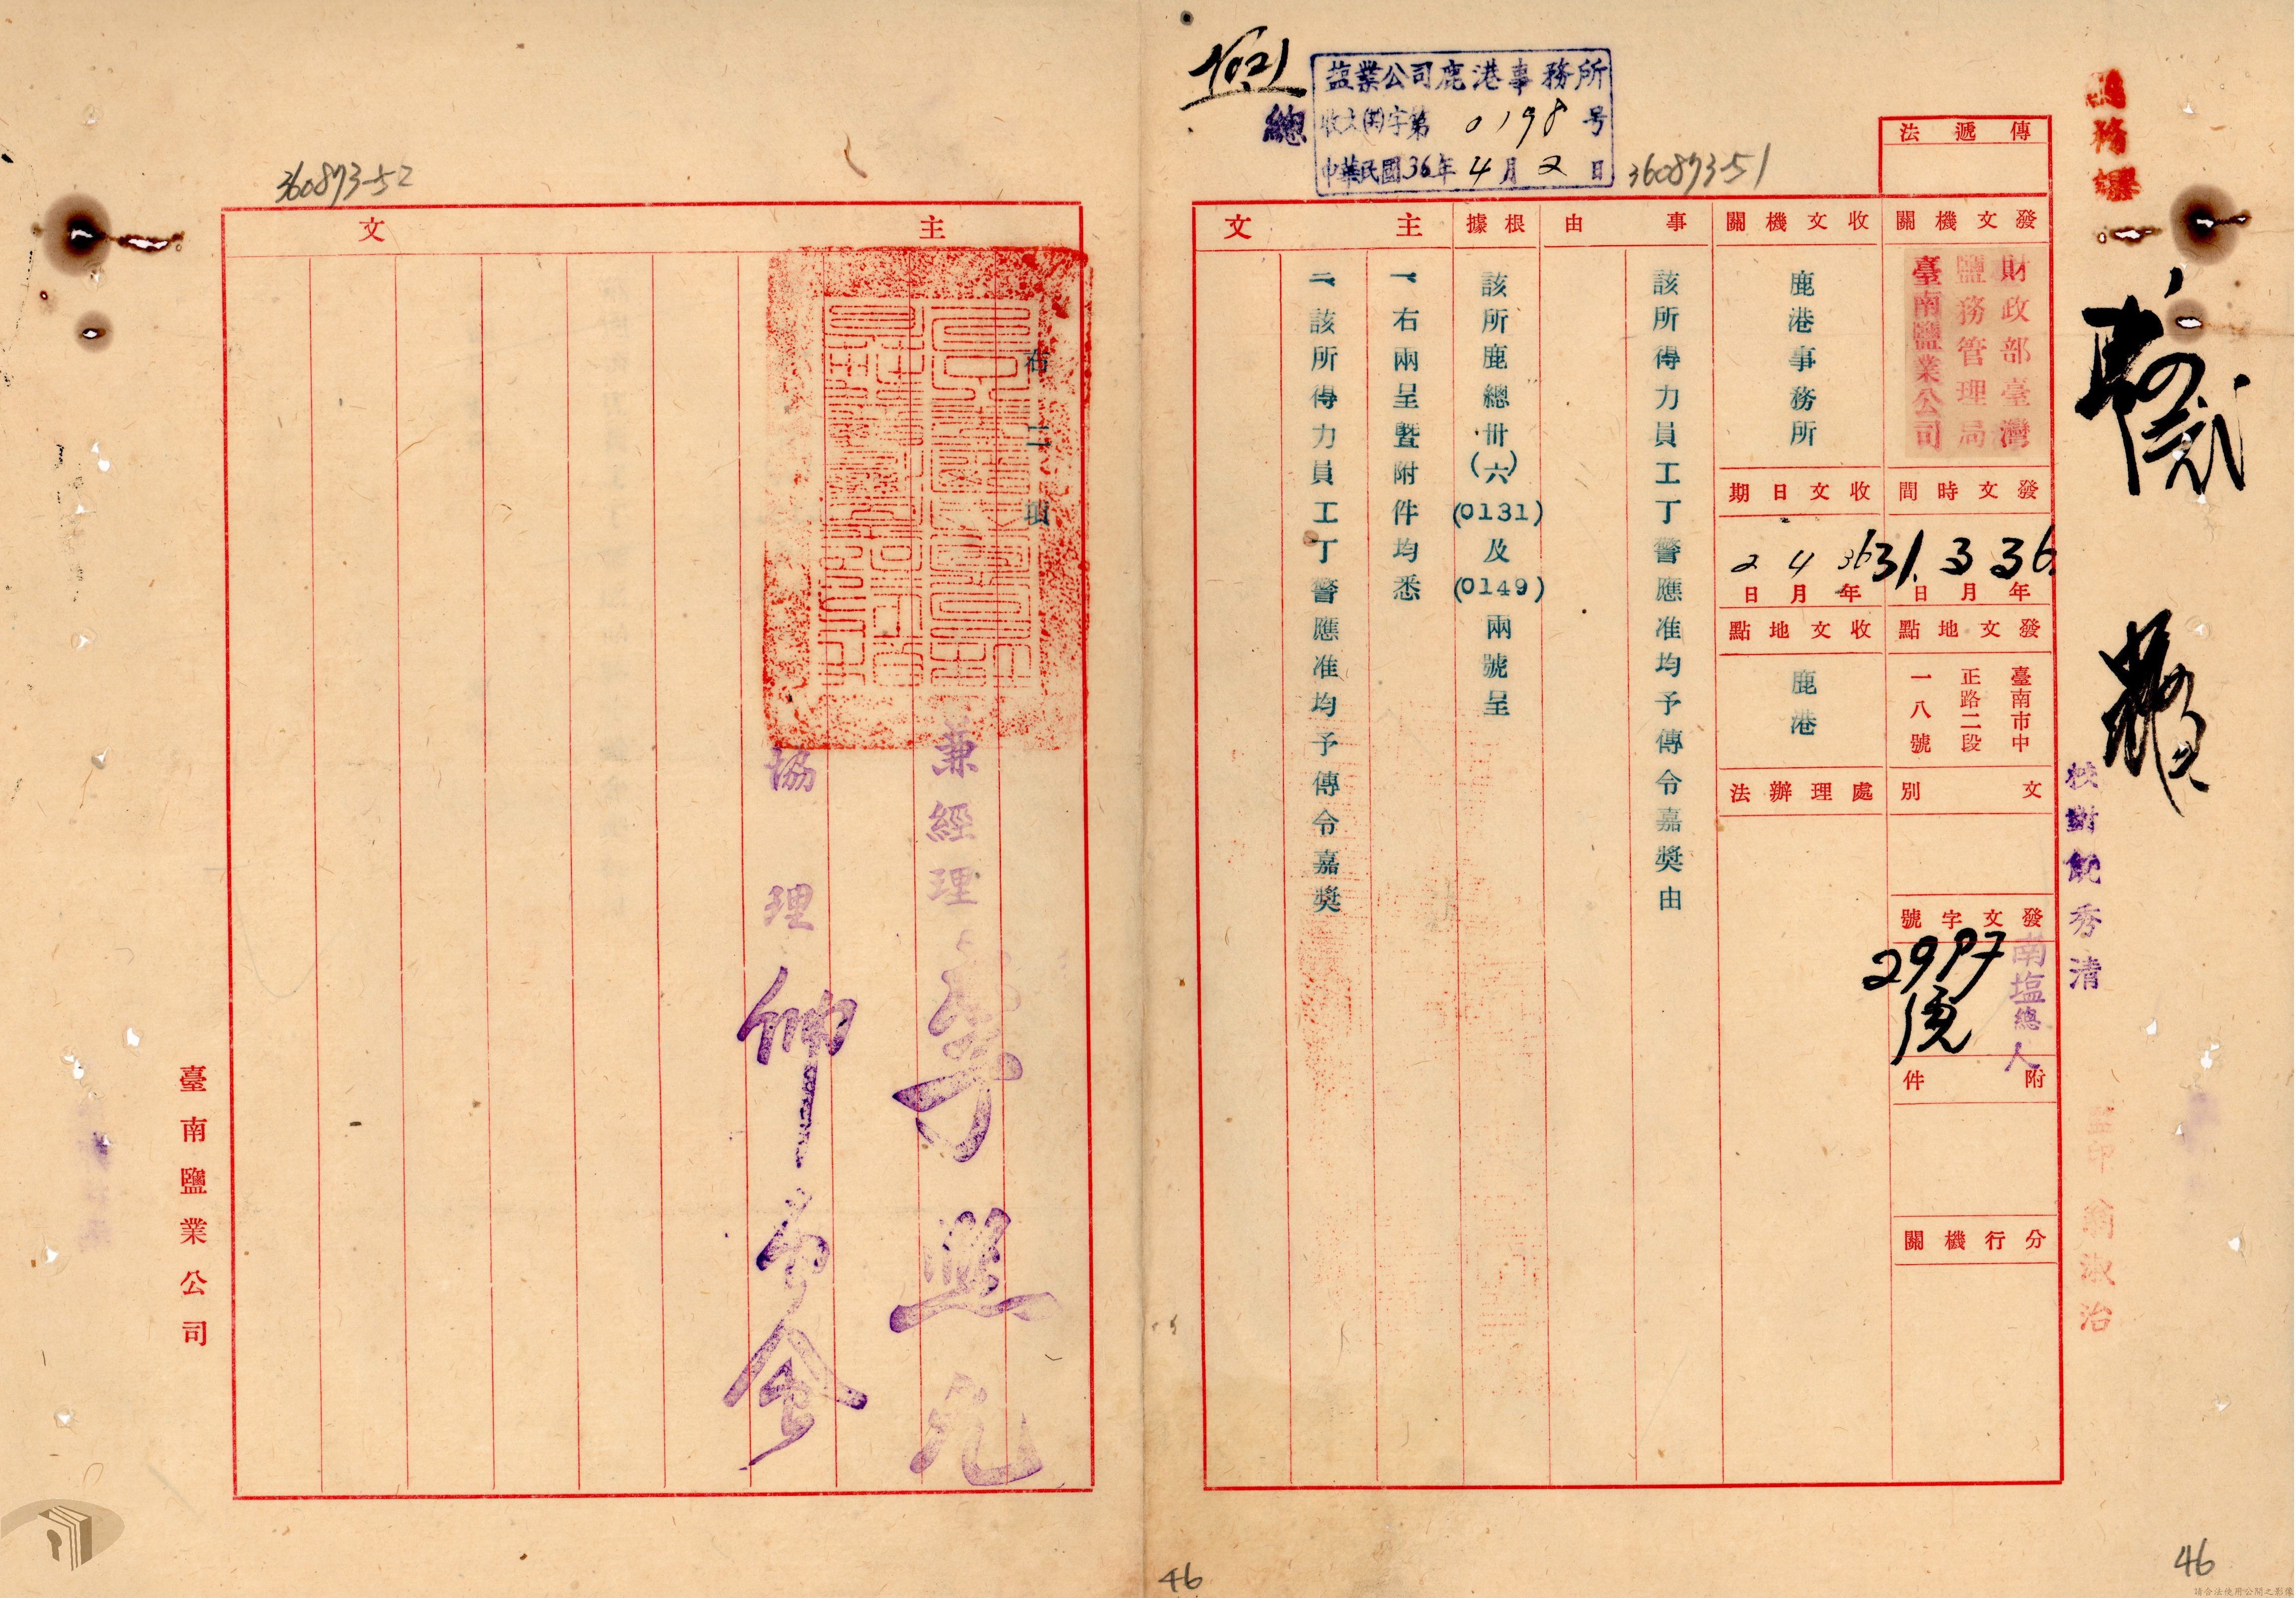 傳遞法
發文機關
財政部臺灣
鹽務管理局
臺南鹽業公司
發文時間
36年3月31日
發文地點
臺南市中
正路二段
一八號
文別
發文字號
南塩總人
2997號
附件
分行機關
收文機關
鹿港事務所
收文日期
36年4月2日
收文地點
鹿港
處理辦法
事由
該所得力員工丁警應准均予傳令嘉獎由
根據
該所鹿總卅(六)(0131)及(0149)兩號呈
主文
一、右兩呈暨附件均悉
二、該所得力員工丁警應准均予傳令嘉獎
塩業公司鹿港事務所
收文(卅)字第0198号
中華民國36年4月2日
總
360873-51
校對
秀清
監印 翁淑治
46
360873-52
主文
右二項
兼經理
協理
臺南鹽業公司
46
請合法使用公開之影像